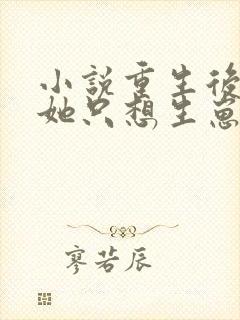 小说重生後
她只想生崽
寥若辰